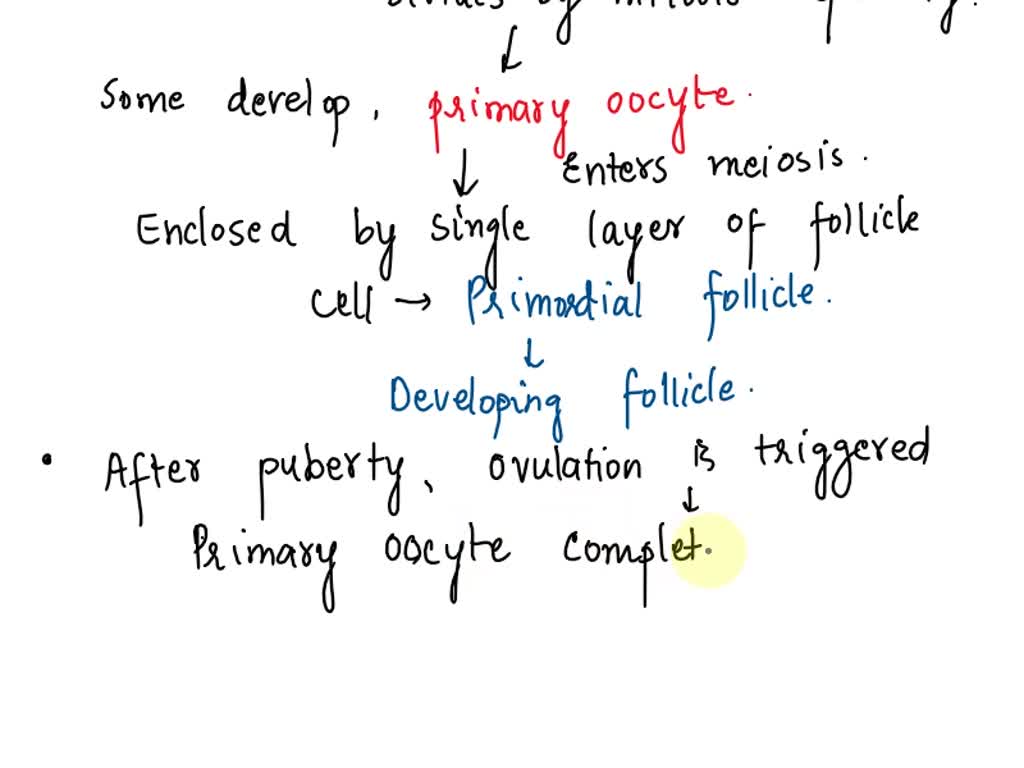 divides by
Some develop, primary oocyte.
Enters meiosis.
Enclosed by single layer of follicle
cell → Primordial follicle.
Developing follicle.
• After puberty, ovulation is triggered
Primary oocyte complet